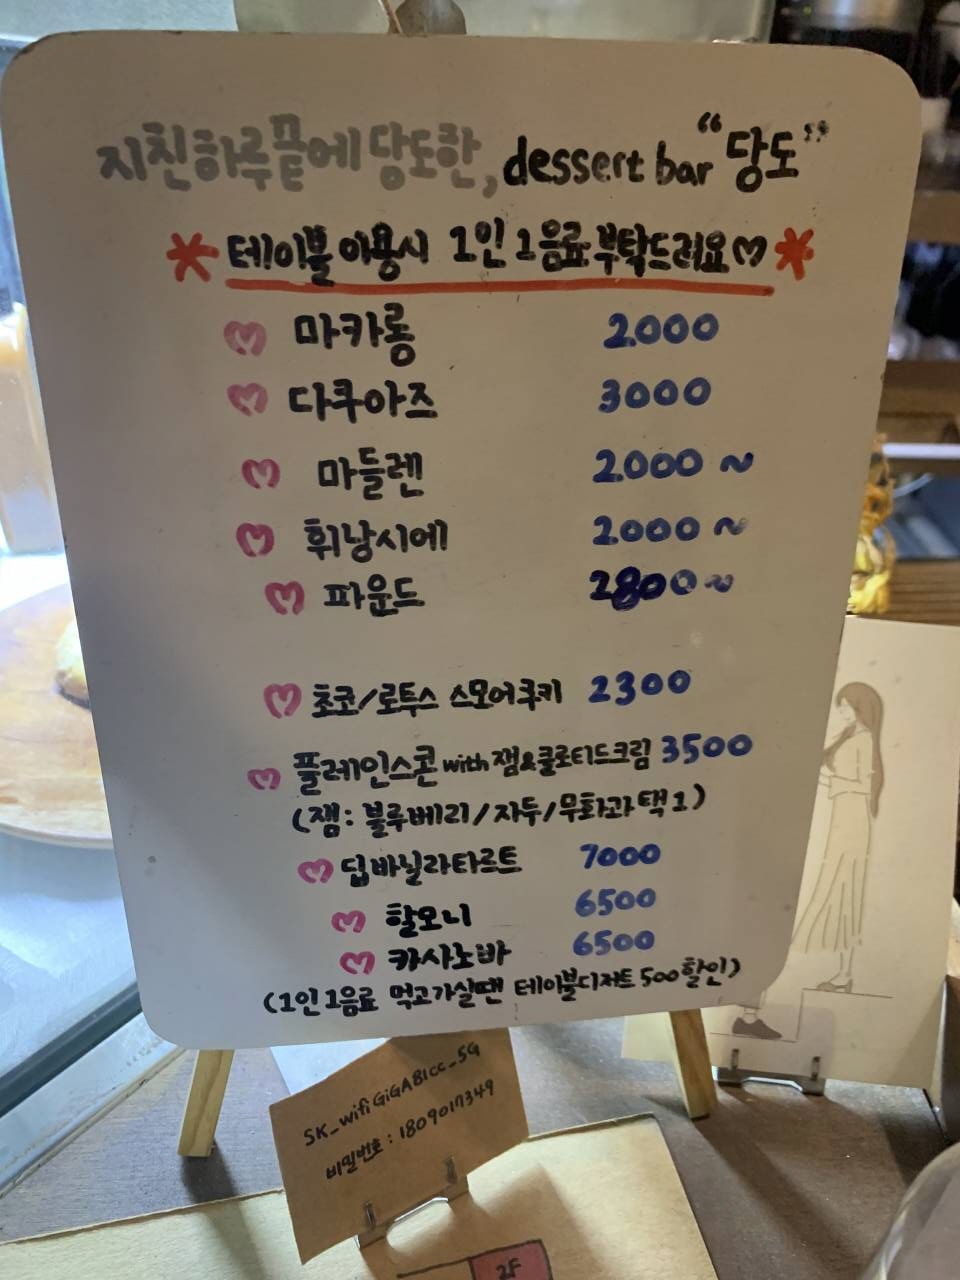 지친하루끝에 당도한, dessert bar "당도"
* 테이블 이용시 1인 1음료 부탁드려요♡ *
♡ 마카롱 2.000
♡ 다쿠아즈 3000
♡ 마들렌 2.000 ~
♡ 휘낭시에 2.000 ~
♡ 파운드 2800 ~
♡ 초코/로투스 스모어쿠키 2300
♡ 플레인스콘 with 잼&클로티드크림 3500
(잼: 블루베리/자두/무화과 택1)
♡ 딥바닐라타르트 7000
♡ 할모니 6500
♡ 카사노바 6500
(1인 1음료 먹고가실땐 테이블디저트 500할인)
SK_wifi GiGAB1cc_5G
비밀번호 : 1809017349
2F